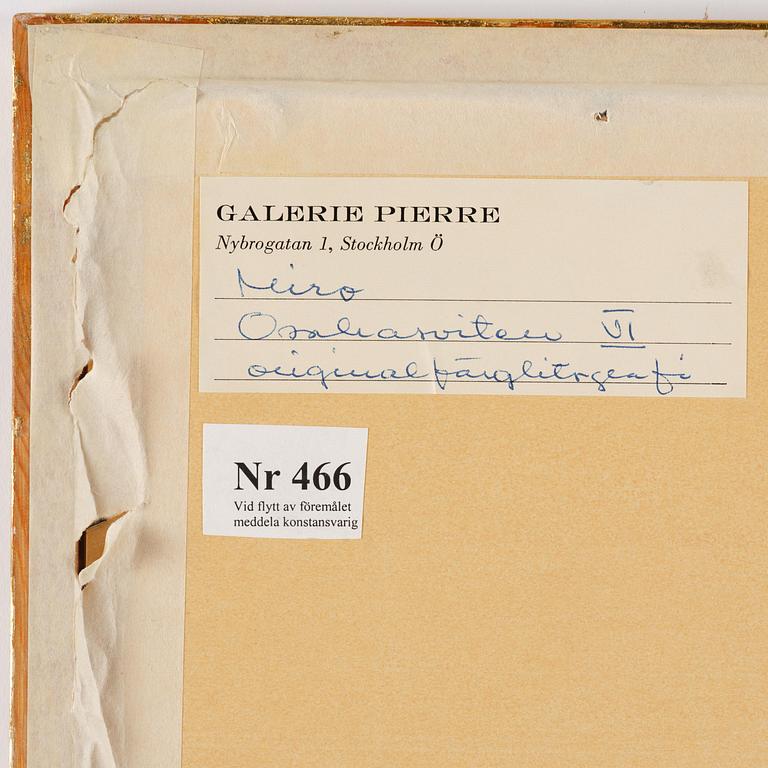 GALERIE PIERRE
Nybrogatan 1, Stockholm Ö
Miro
Osakasviten VI
originalfärglitografi
Nr 466
Vid flytt av föremålet
meddela konstansvarig